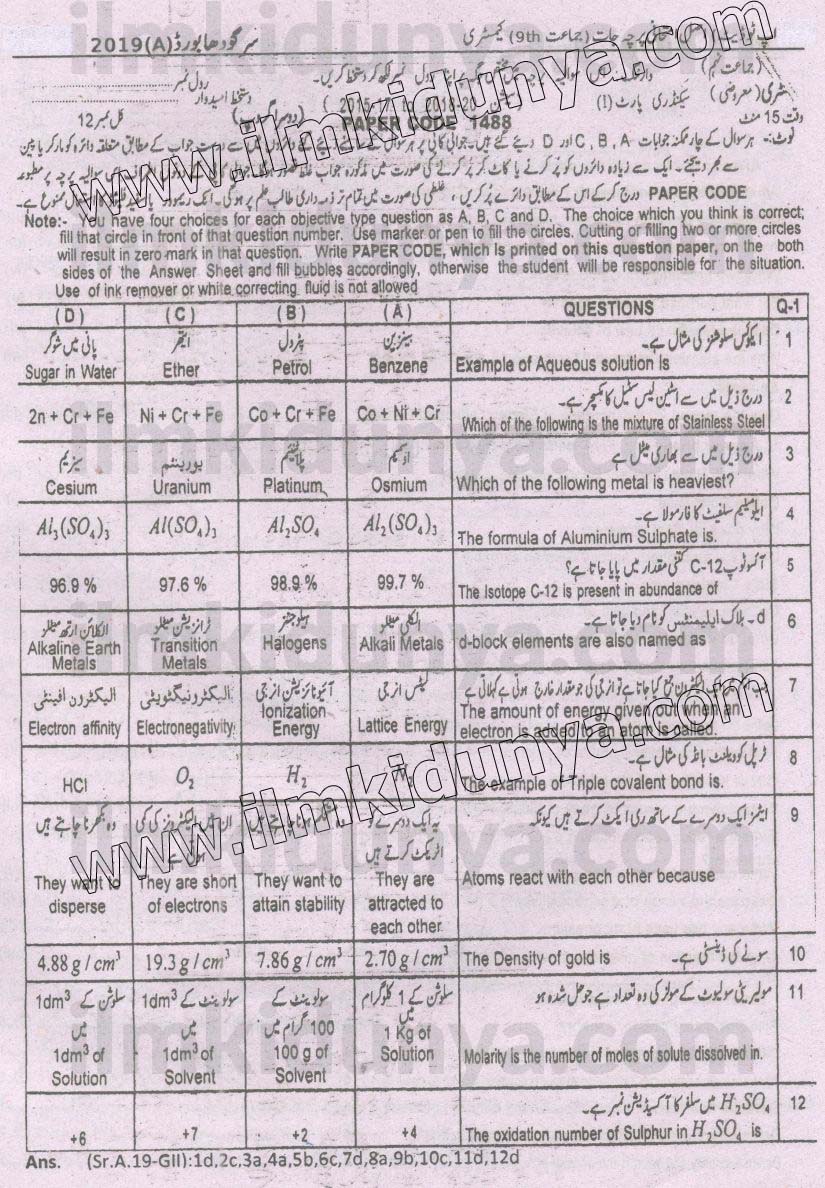 سرگودھا بورڈ 2019(A)
کیمسٹری (جماعت 9th)
رول نمبر
(جماعت نہم)
دستخط امیدوار
سیکنڈری پارٹ (I)
(معروضی)
کل نمبر 12
وقت 15 منٹ
PAPER CODE 1488
نوٹ:- ہر سوال کے چار ممکنہ جوابات A , B , C اور D دیئے گئے ہیں۔
PAPER CODE درج کر کے اس کے مطابق دائرے پُر کریں ،
Note:- You have four choices for each objective type question as A, B, C and D. The choice which you think is correct;
fill that circle in front of that question number. Use marker or pen to fill the circles. Cutting or filling two or more circles
will result in zero mark in that question. Write PAPER CODE, which is printed on this question paper, on the both
sides of the Answer Sheet and fill bubbles accordingly, otherwise the student will be responsible for the situation.
Use of ink remover or white correcting fluid is not allowed
(D) (C) (B) (A) QUESTIONS Q-1
پانی میں شوگر ایتھر پٹرول بینزین ایکوئس سلوشنز کی مثال ہے۔ 1
Sugar in Water Ether Petrol Benzene Example of Aqueous solution is
درج ذیل میں سے اسٹین لیس سٹیل کا مکسچر ہے۔ 2
2n + Cr + Fe Ni + Cr + Fe Co + Cr + Fe Co + Ni + Cr Which of the following is the mixture of Stainless Steel
سیزیم یورینیم پلاٹینیم اوسمیم درج ذیل میں سے بھاری میٹل ہے 3
Cesium Uranium Platinum Osmium Which of the following metal is heaviest?
ایلومینیم سلفیٹ کا فارمولا ہے۔ 4
Al3(SO4)3 Al(SO4)3 Al2SO4 Al2(SO4)3 The formula of Aluminium Sulphate is.
آئسوٹوپ C-12 کتنی مقدار میں پایا جاتا ہے؟ 5
96.9 % 97.6 % 98.9 % 99.7 % The Isotope C-12 is present in abundance of
الکلائن ارتھ میٹلز ٹرانزیشن میٹلز ہیلوجنز الکلی میٹلز d- بلاک ایلیمنٹس کو نام دیا جاتا ہے۔ 6
Alkaline Earth Metals Transition Metals Halogens Alkali Metals d-block elements are also named as
الیکٹرون افینٹی الیکٹرونیگٹویٹی آئیونائزیشن انرجی لیٹس انرجی 7
Electron affinity Electronegativity Ionization Energy Lattice Energy The amount of energy given out when an
electron is added to an atom is called.
ٹرپل کوویلنٹ بانڈ کی مثال ہے۔ 8
HCl O2 H2 The example of Triple covalent bond is.
وہ بکھرنا چاہتے ہیں ان میں الیکٹرونز کی کمی یہ ایک دوسرے کو اٹریکٹ کرتے ہیں ایٹمز ایک دوسرے کے ساتھ ری ایکٹ کرتے ہیں کیونکہ 9
They want to disperse They are short of electrons They want to attain stability They are attracted to each other Atoms react with each other because
4.88 g / cm3 19.3 g / cm3 7.86 g / cm3 2.70 g / cm3 The Density of gold is سونے کی ڈینسٹی ہے۔ 10
سلوشن کے 1dm3 میں سولوینٹ کے 1dm3 میں سولوینٹ کے 100 گرام میں سلوشن کے 1 کلوگرام میں مولیریٹی سولیوٹ کے مولز کی وہ تعداد ہے جو حل شدہ ہو 11
1dm3 of Solution 1dm3 of Solvent 100 g of Solvent 1 Kg of Solution Molarity is the number of moles of solute dissolved in.
H2SO4 میں سلفر کا آکسیڈیشن نمبر ہے۔ 12
+6 +7 +2 +4 The oxidation number of Sulphur in H2SO4 is
Ans. (Sr.A.19-GII):1d,2c,3a,4a,5b,6c,7d,8a,9b,10c,11d,12d
www.ilmkidunya.com
www.ilmkidunya.com
ilmkidunya.com
ilmkidunya.com
ilmkidunya.com